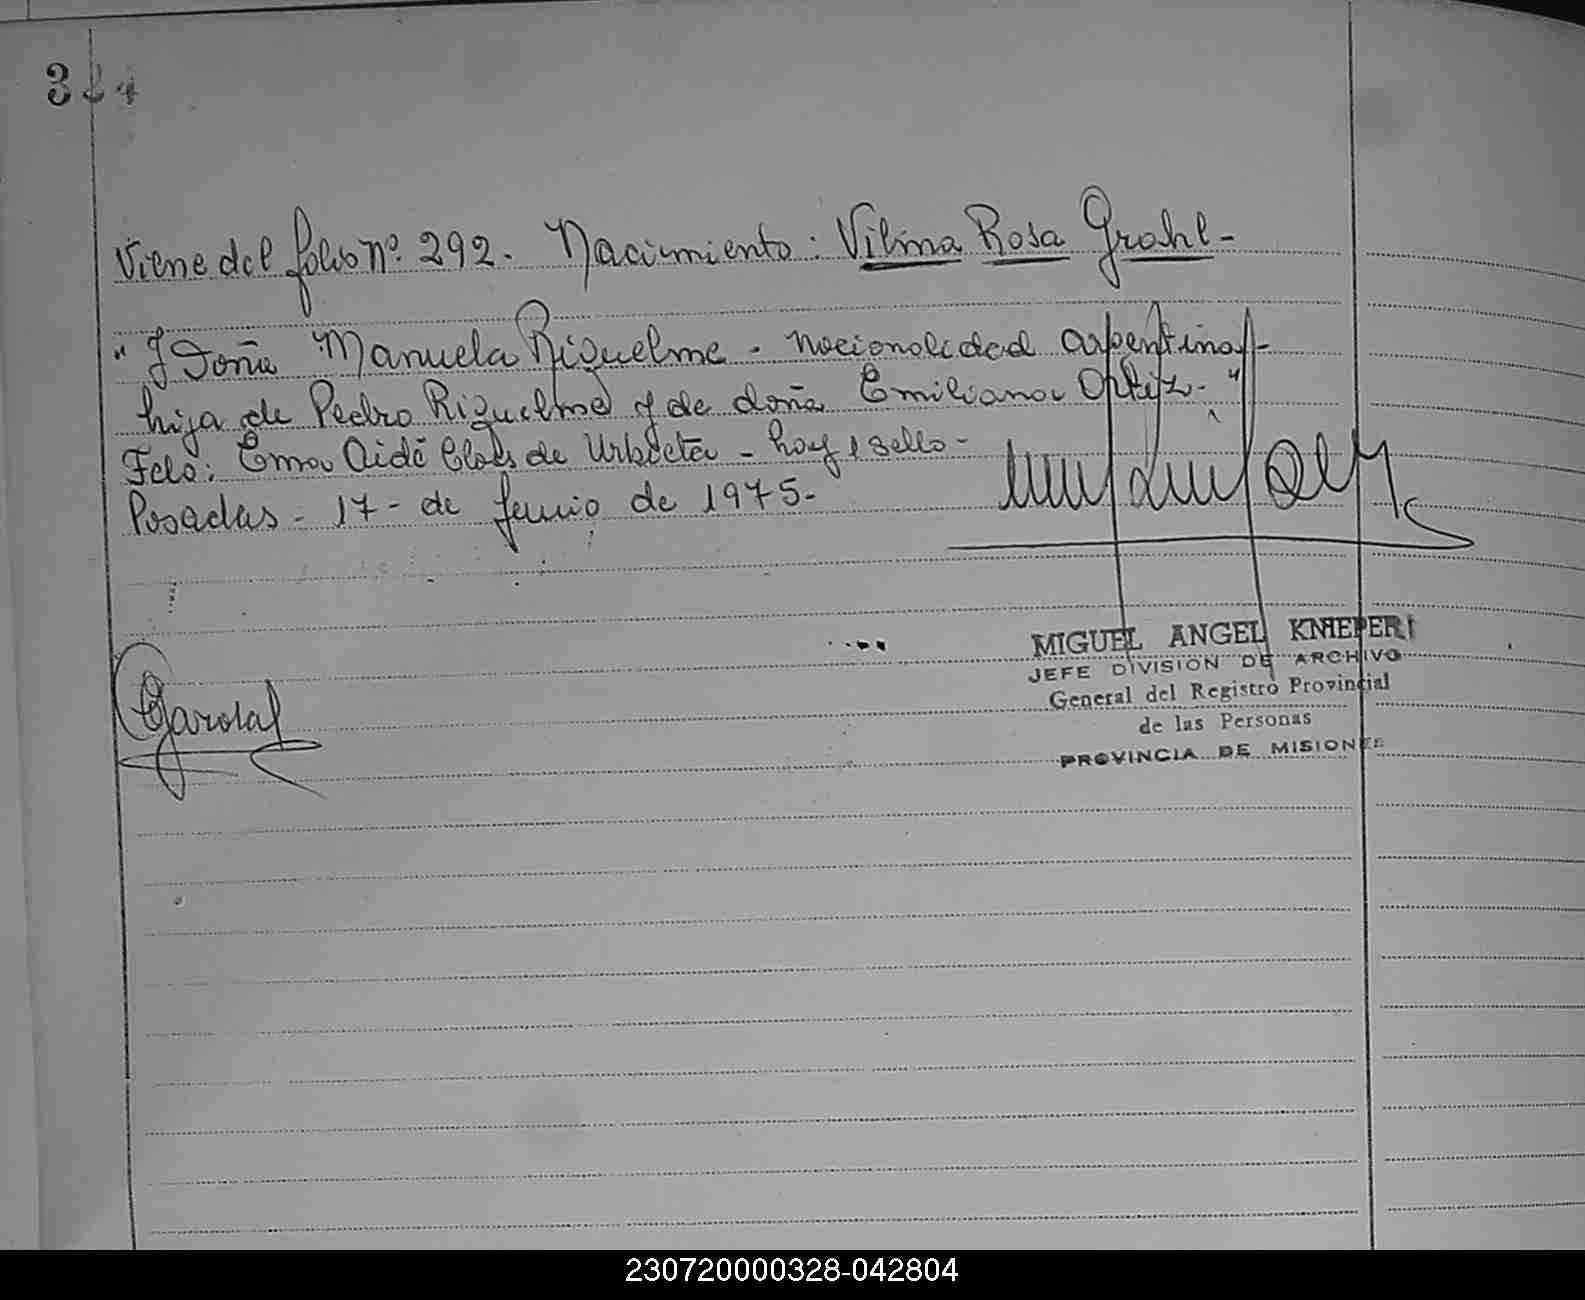 324
Viene del folio nº 292. Nacimiento: Vilma Rosa Grahl-
"y Doña Manuela Riquelme - nacionalidad argentina-
hija de Pedro Riquelme y de doña Emiliana Ortiz-"
Fdo: Ema Aidé de Urbieta - hay 1 sello-
Posadas - 17 - de junio de 1975-
MIGUEL ANGEL KNIEPERT
JEFE DIVISION DE ARCHIVO
General del Registro Provincial
de las Personas
PROVINCIA DE MISIONES
230720000328-042804